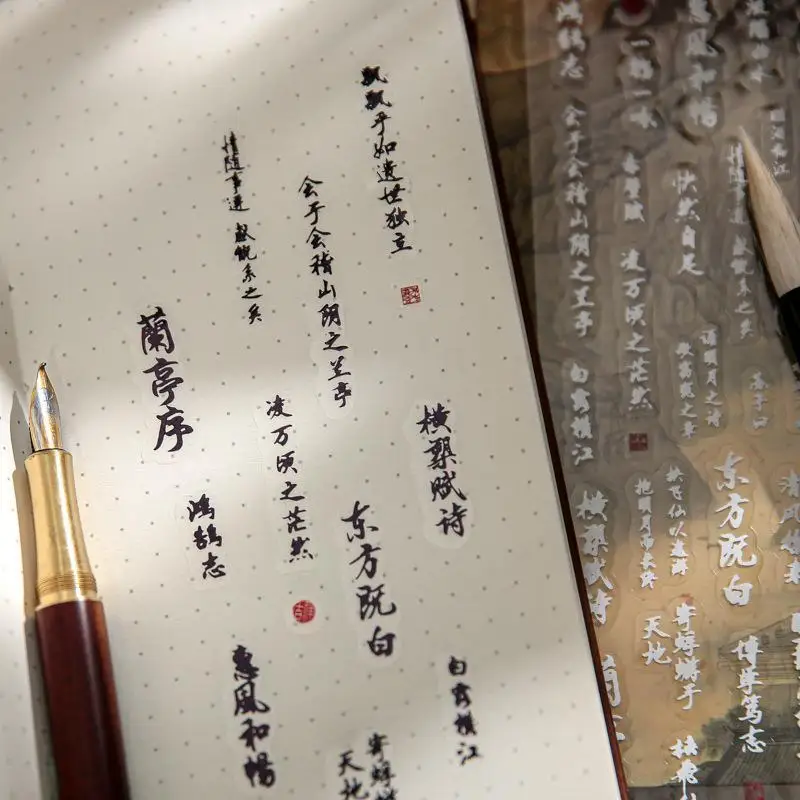 飘飘乎如遗世独立
会于会稽山阴之兰亭
情随事迁 感慨系之矣
蘭亭序
横槊赋诗
凌万顷之茫然
东方既白
鸿鹄志
白露横江
寄蜉蝣
天地
惠風和暢
鸿鹄志
会于会稽山阴之兰亭
白露横江
横槊赋诗
一觞一咏
赤壁赋
凌万顷之茫然
惠風和暢
快然自足
诵明月之诗
歌窈窕之章
情随事迁
感慨系之矣
挟飞仙以遨游
抱明月而长终
东方既白
寄蜉蝣于
天地
博学笃志